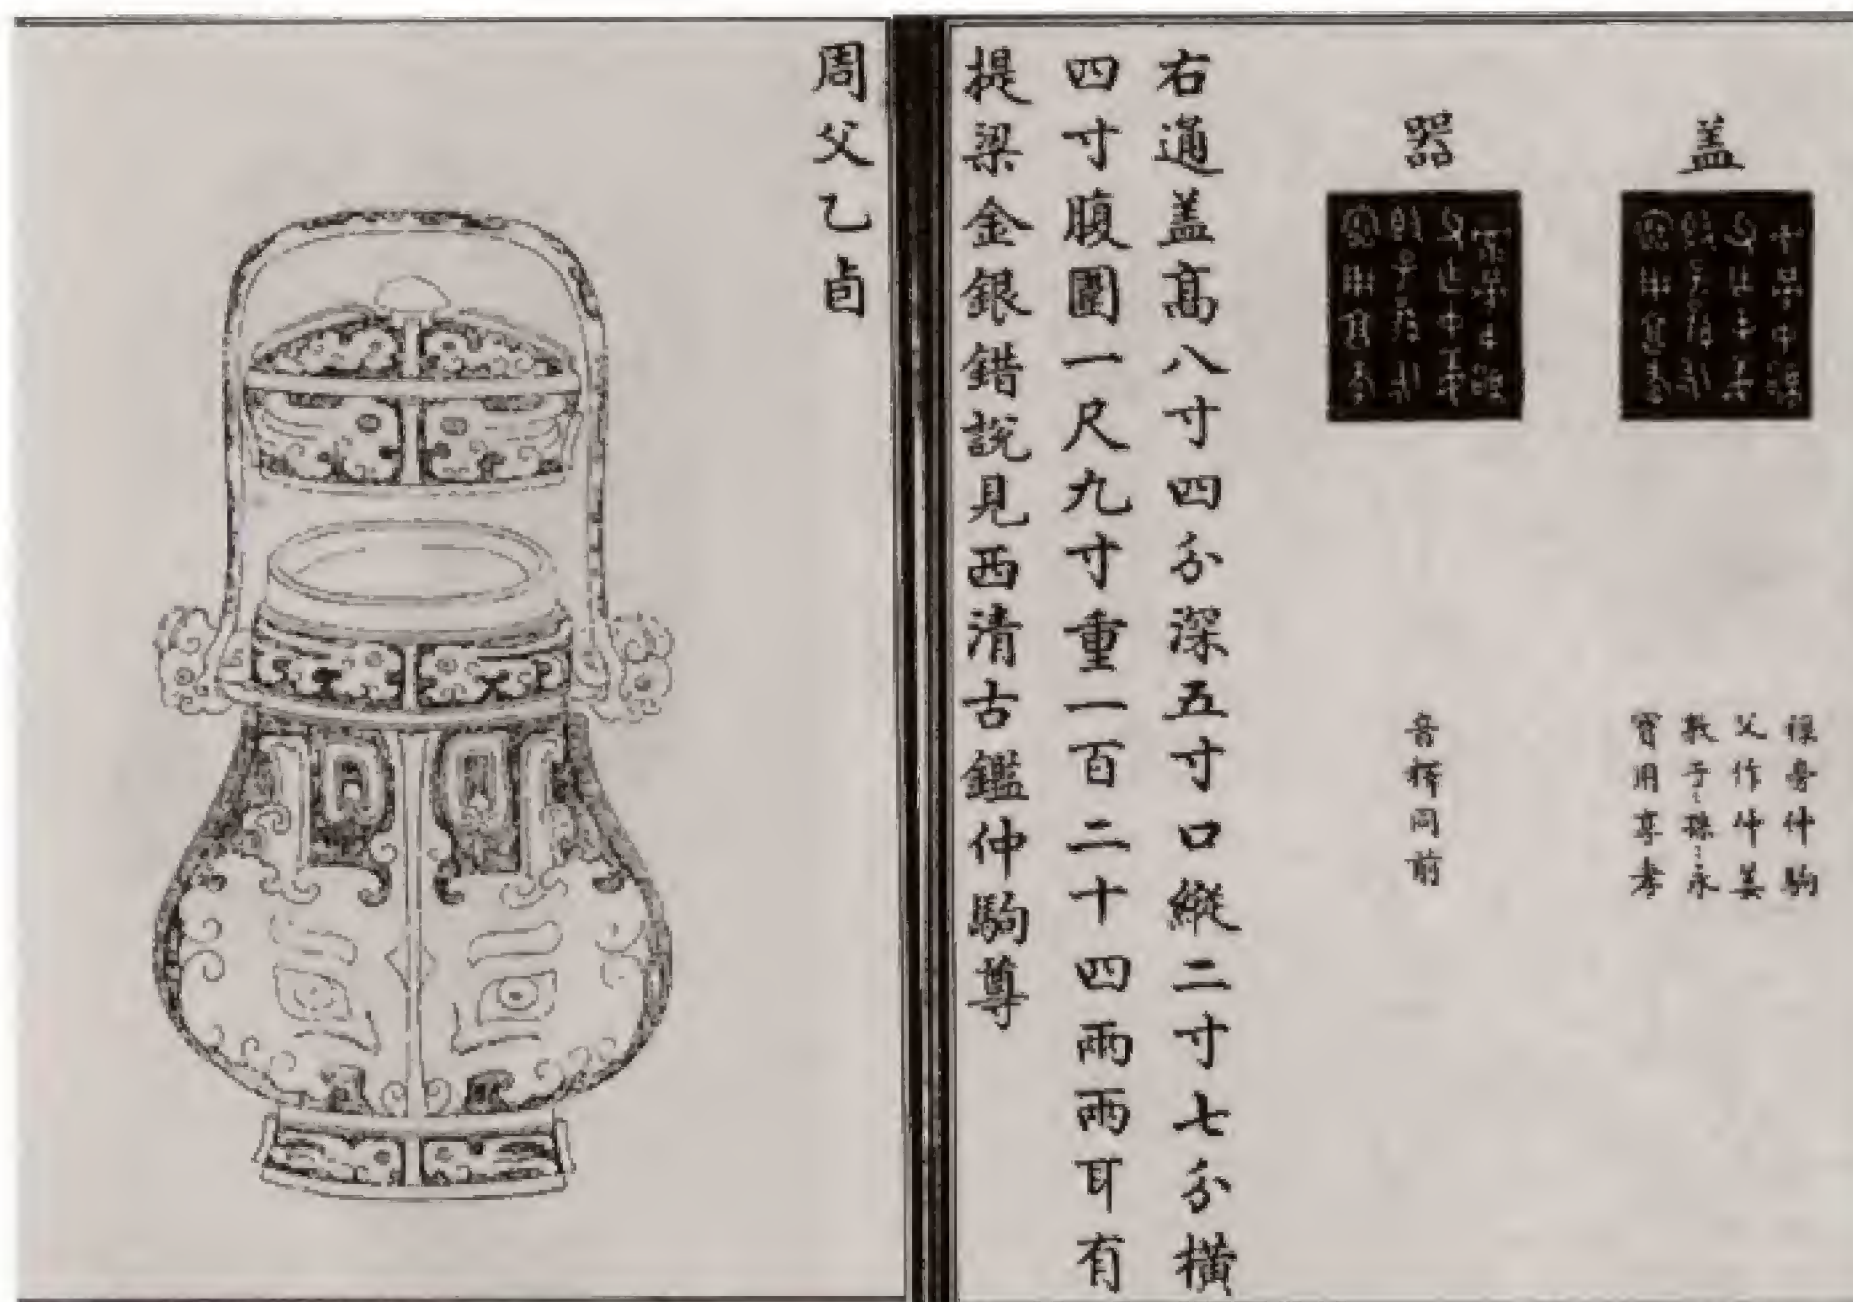 盖
祿旁仲駒
父作仲姜
敦子〻孫〻永
寳用享孝
器
音釋同前
右通盖高八寸四分深五寸口縱二寸七分橫
四寸腹圍一尺九寸重一百二十四兩兩耳有
提梁金銀錯說見西清古鑑仲駒尊
周父乙卣